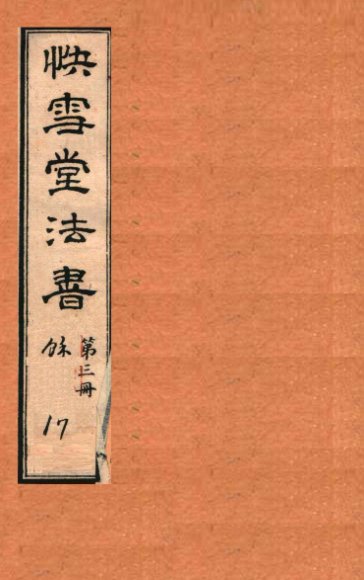 快雪堂法書
第三冊
17